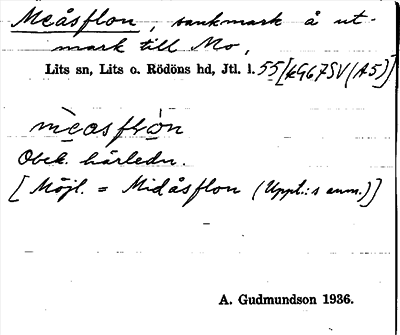 Meåsflon, sankmark å ut-
mark till Mo,
Lits sn, Lits o. Rödöns hd, Jtl. l. 55 [kG67SV(A5)]
mèasflòn
Obek. härledn.
[Möjl. = Midåsflon (Uppt.:s anm.)]
A. Gudmundson 1936.